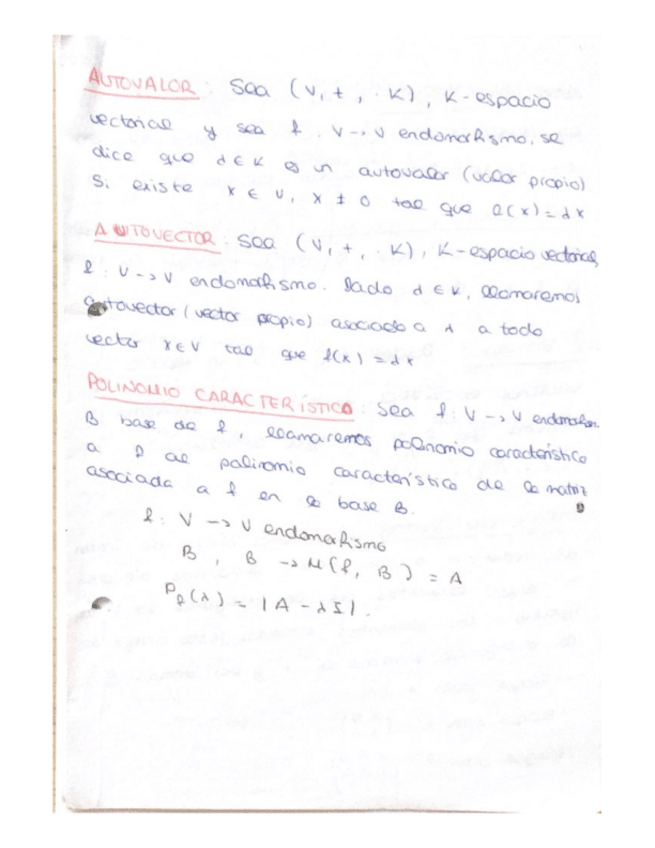 AUTOVALOR: Sea (V, +, ·K), K-espacio
vectorial y sea f: V -> V endomorfismo, se
dice que λ ∈ K es un autovalor (valor propio)
si existe x ∈ V, x ≠ 0 tal que f(x) = λx
AUTOVECTOR: Sea (V, +, ·K), K-espacio vectorial,
f: V -> V endomorfismo. Dado λ ∈ K, llamaremos
autovector (vector propio) asociado a λ a todo
vector x ∈ V tal que f(x) = λx
POLINOMIO CARACTERÍSTICO: Sea f: V -> V endomorfism.
B base de f, llamaremos polinomio característico
a f al polinomio característico de la matriz
asociada a f en la base B.
f: V -> V endomorfismo
B, B -> M(f, B) = A
Pf(λ) = |A - λI|.